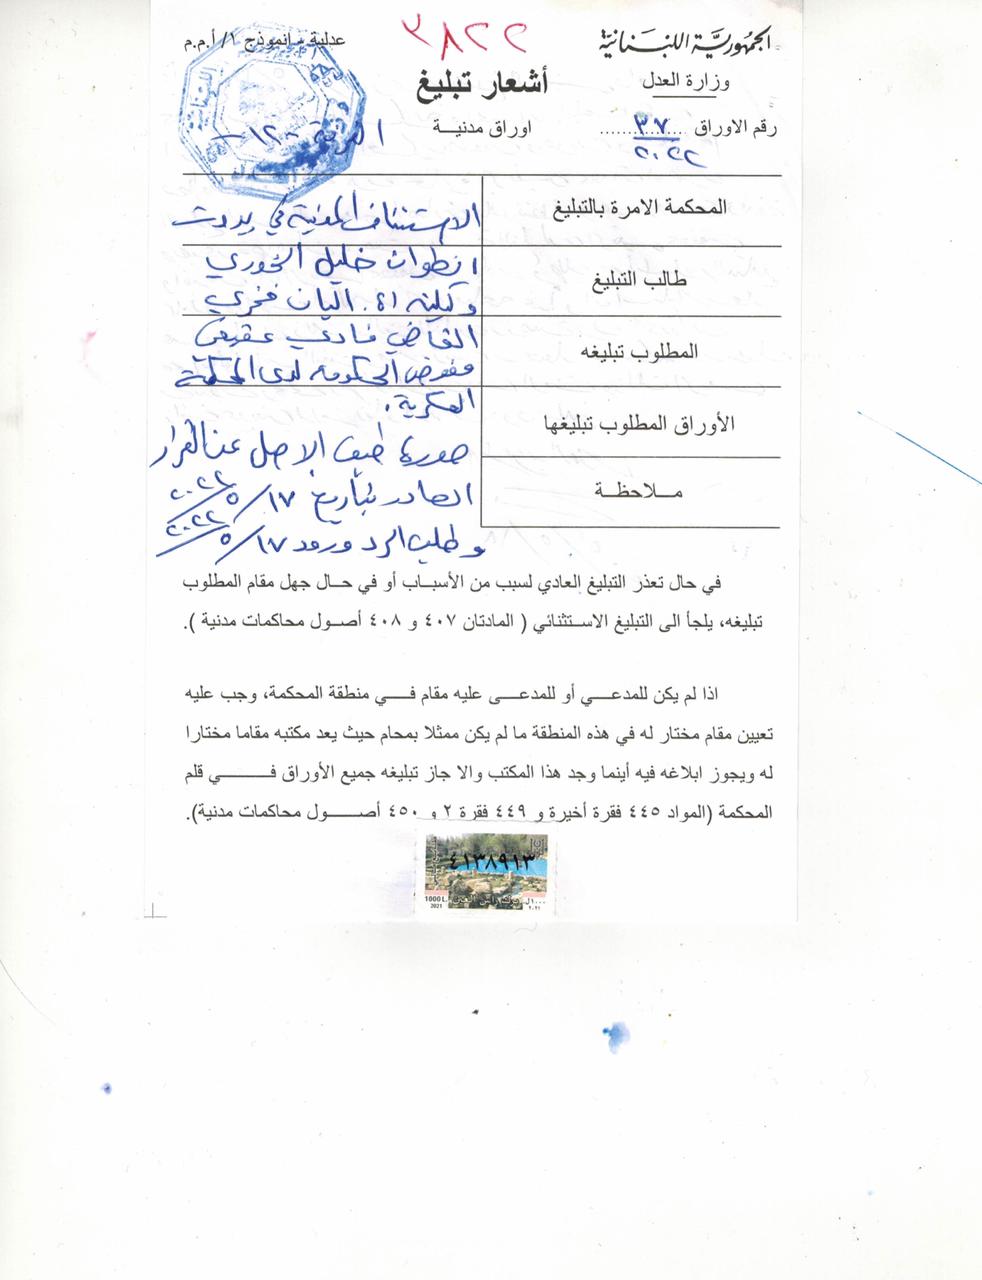 الجمهورية اللبنانية
وزارة العدل
رقم الاوراق ٣٧
٢٠٢٢
٣٨٢٢
أشعار تبليغ
اوراق مدنيــة
عدلية - انموذج ١/ أ.م.م
الغرفة -١٢-
المحكمة الامرة بالتبليغ
الاستئناف المدنية في بيروت
طالب التبليغ
انطوان خليل الخوري
وكيلته أ. اليان فخري
المطلوب تبليغه
القاضي فادي عقيقي
مفوض الحكومة لدى المحكمة
العسكرية.
الأوراق المطلوب تبليغها
صورة طبق الاصل عن القرار
الصادر بتاريخ ١٧/٥/٢٠٢٢
وطلب الرد ورود ١٧/٥/٢٠٢٢
مــلاحظــة
في حال تعذر التبليغ العادي لسبب من الأسبــاب أو في حــال جهل مقام المطلوب
تبليغه، يلجأ الى التبليغ الاســتثنائي ( المادتان ٤٠٧ و ٤٠٨ أصــول محاكمات مدنية ).
اذا لم يكن للمدعــي أو للمدعــى عليه مقام فــــي منطقة المحكمة، وجب عليه
تعيين مقام مختار له في هذه المنطقة ما لم يكن ممثلا بمحام حيث يعد مكتبه مقاما مختارا
له ويجوز ابلاغه فيه أينما وجد هذا المكتب والا جاز تبليغه جميع الأوراق فـــــــي قلم
المحكمة (المواد ٤٤٥ فقرة أخيرة و ٤٤٩ فقرة ٢ و ٤٥٠ أصـــــول محاكمات مدنية).
٤١٣٨٩١٣
1000 L.
2021
١٠٠٠ل
٢٠٢١